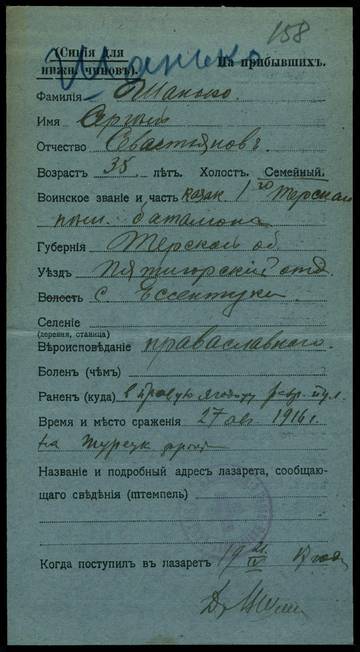 158
(Синія для
нижн. чиновъ).
Шанько
На прибывшихъ.
Фамилія Шанько.
Имя Сергѣй
Отчество Севастьяновъ
Возрастъ 35 лѣтъ. Холост. Семейный.
Воинское званіе и часть казак 1го Терскаго
баталіона
Губернія Терской об.
Уѣздъ Пятигорскій отд.
Волость с Ессентуки
Селеніе
(деревня, станица)
Вѣроисповѣданіе православнаго.
Боленъ (чѣмъ)
Раненъ (куда) в правую ягодицу
Время и мѣсто сраженія 27 авг. 1916 г.
на Турецк фронт
Названіе и подробный адресъ лазарета, сообщаю-
щаго свѣдѣнія (штемпель)
Когда поступилъ въ лазаретъ 19 IV 17 года